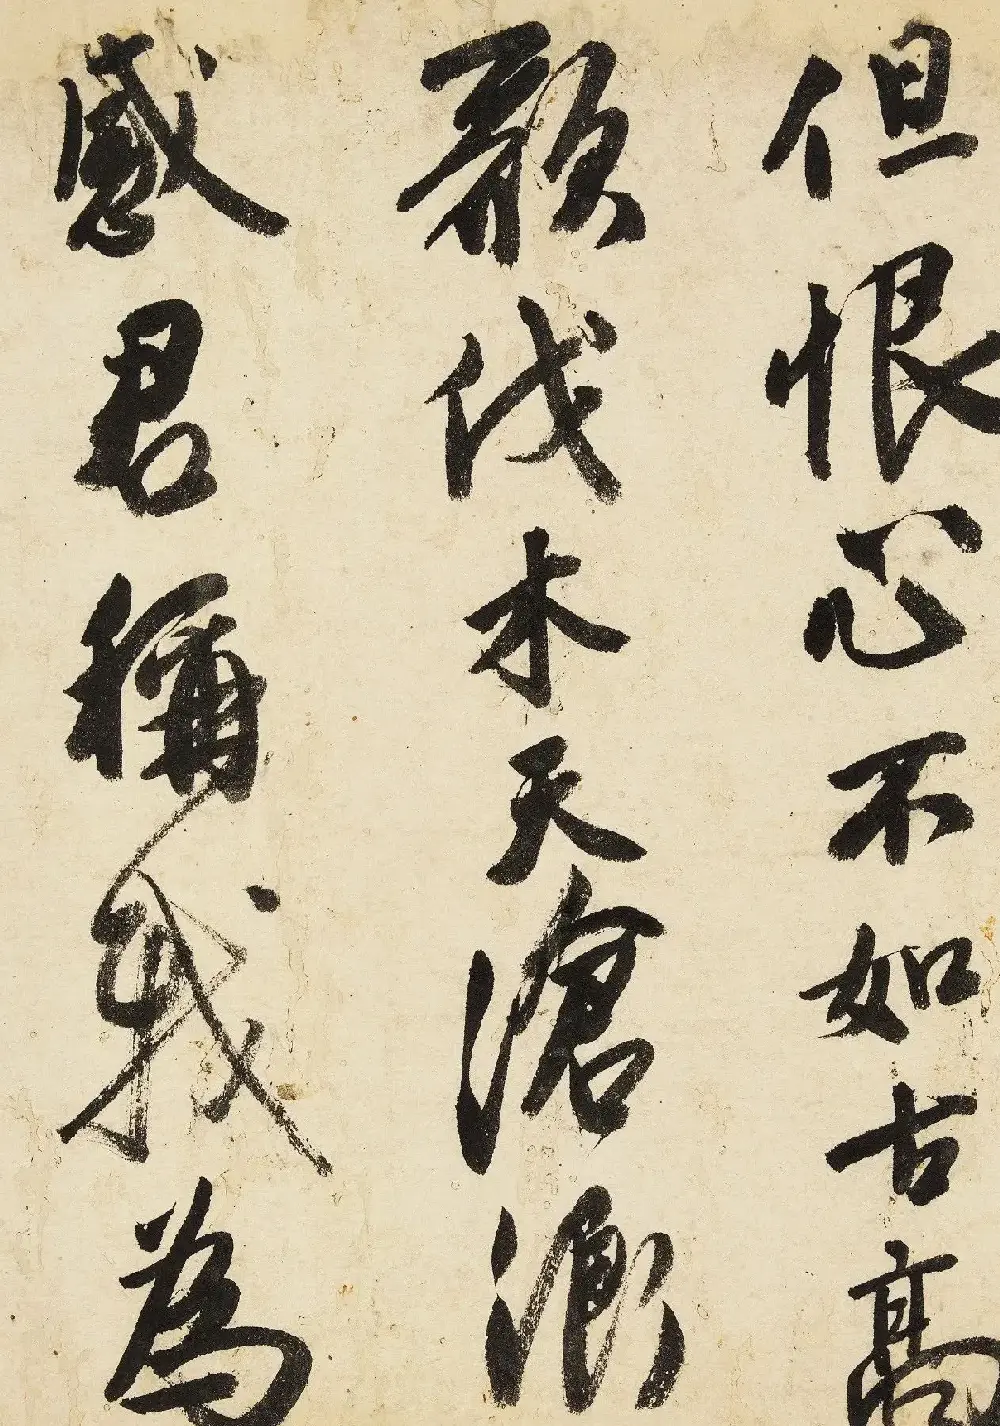 但恨心不如古高
歌伐木天滄浪
感君稱我為